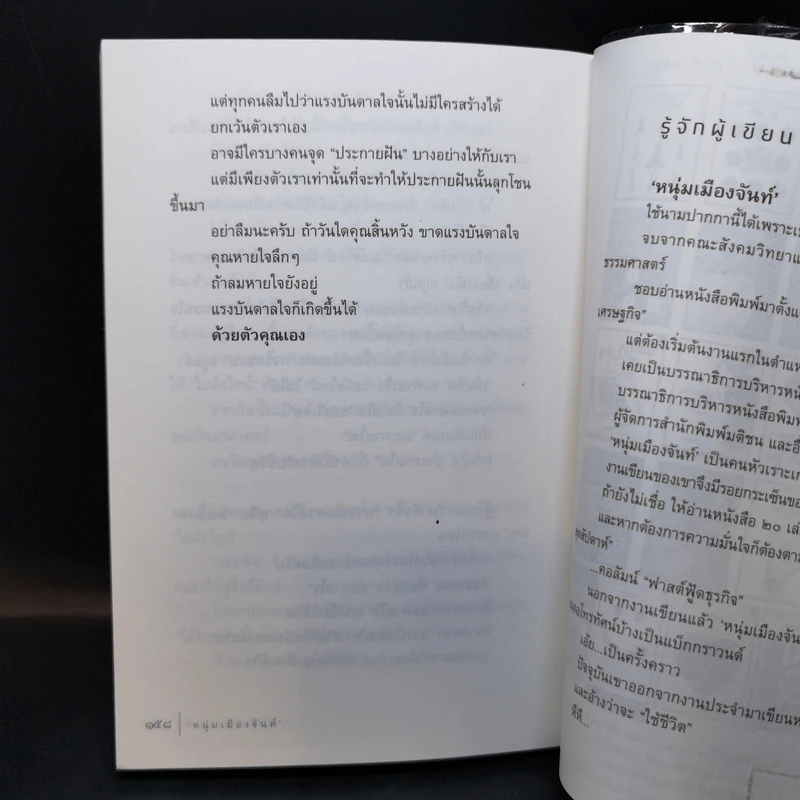 แต่ทุกคนลืมไปว่าแรงบันดาลใจนั้นไม่มีใครสร้างได้
ยกเว้นตัวเราเอง
อาจมีใครบางคนจุด "ประกายฝัน" บางอย่างให้กับเรา
แต่มีเพียงตัวเราเท่านั้นที่จะทำให้ประกายฝันนั้นลุกโชน
ขึ้นมา
อย่าลืมนะครับ ถ้าวันใดคุณสิ้นหวัง ขาดแรงบันดาลใจ
คุณหายใจลึกๆ
ถ้าลมหายใจยังอยู่
แรงบันดาลใจก็เกิดขึ้นได้
ด้วยตัวคุณเอง
๑๕๘ | 'หนุ่มเมืองจันท์'
รู้จักผู้เขียน
'หนุ่มเมืองจันท์'
ใช้นามปากกานี้ได้เพราะ
จบจากคณะสังคมวิทยา
ธรรมศาสตร์
ชอบอ่านหนังสือพิมพ์มาตั้งแต่
เศรษฐกิจ"
แต่ต้องเริ่มต้นงานแรกในตำแห
เคยเป็นบรรณาธิการบริหารหนั
บรรณาธิการบริหารหนังสือพิมพ์
ผู้จัดการสำนักพิมพ์มติชน และอี
'หนุ่มเมืองจันท์' เป็นคนหัวเราะเก
งานเขียนของเขาจึงมีรอยกระเซ็นขอ
ถ้ายังไม่เชื่อ ให้อ่านหนังสือ ๒๐ เล่
และหากต้องการความมั่นใจก็ต้องตาม
สุดสัปดาห์"
...คอลัมน์ "ฟาสต์ฟู้ดธุรกิจ"
นอกจากงานเขียนแล้ว 'หนุ่มเมืองจัน
จอโทรทัศน์บ้างเป็นแบ็กกราวนด์
เอ้ย...เป็นครั้งคราว
ปัจจุบันเขาออกจากงานประจำมาเขียนห
และอ้างว่าจะ "ใช้ชีวิต"
ฮิฮิ...